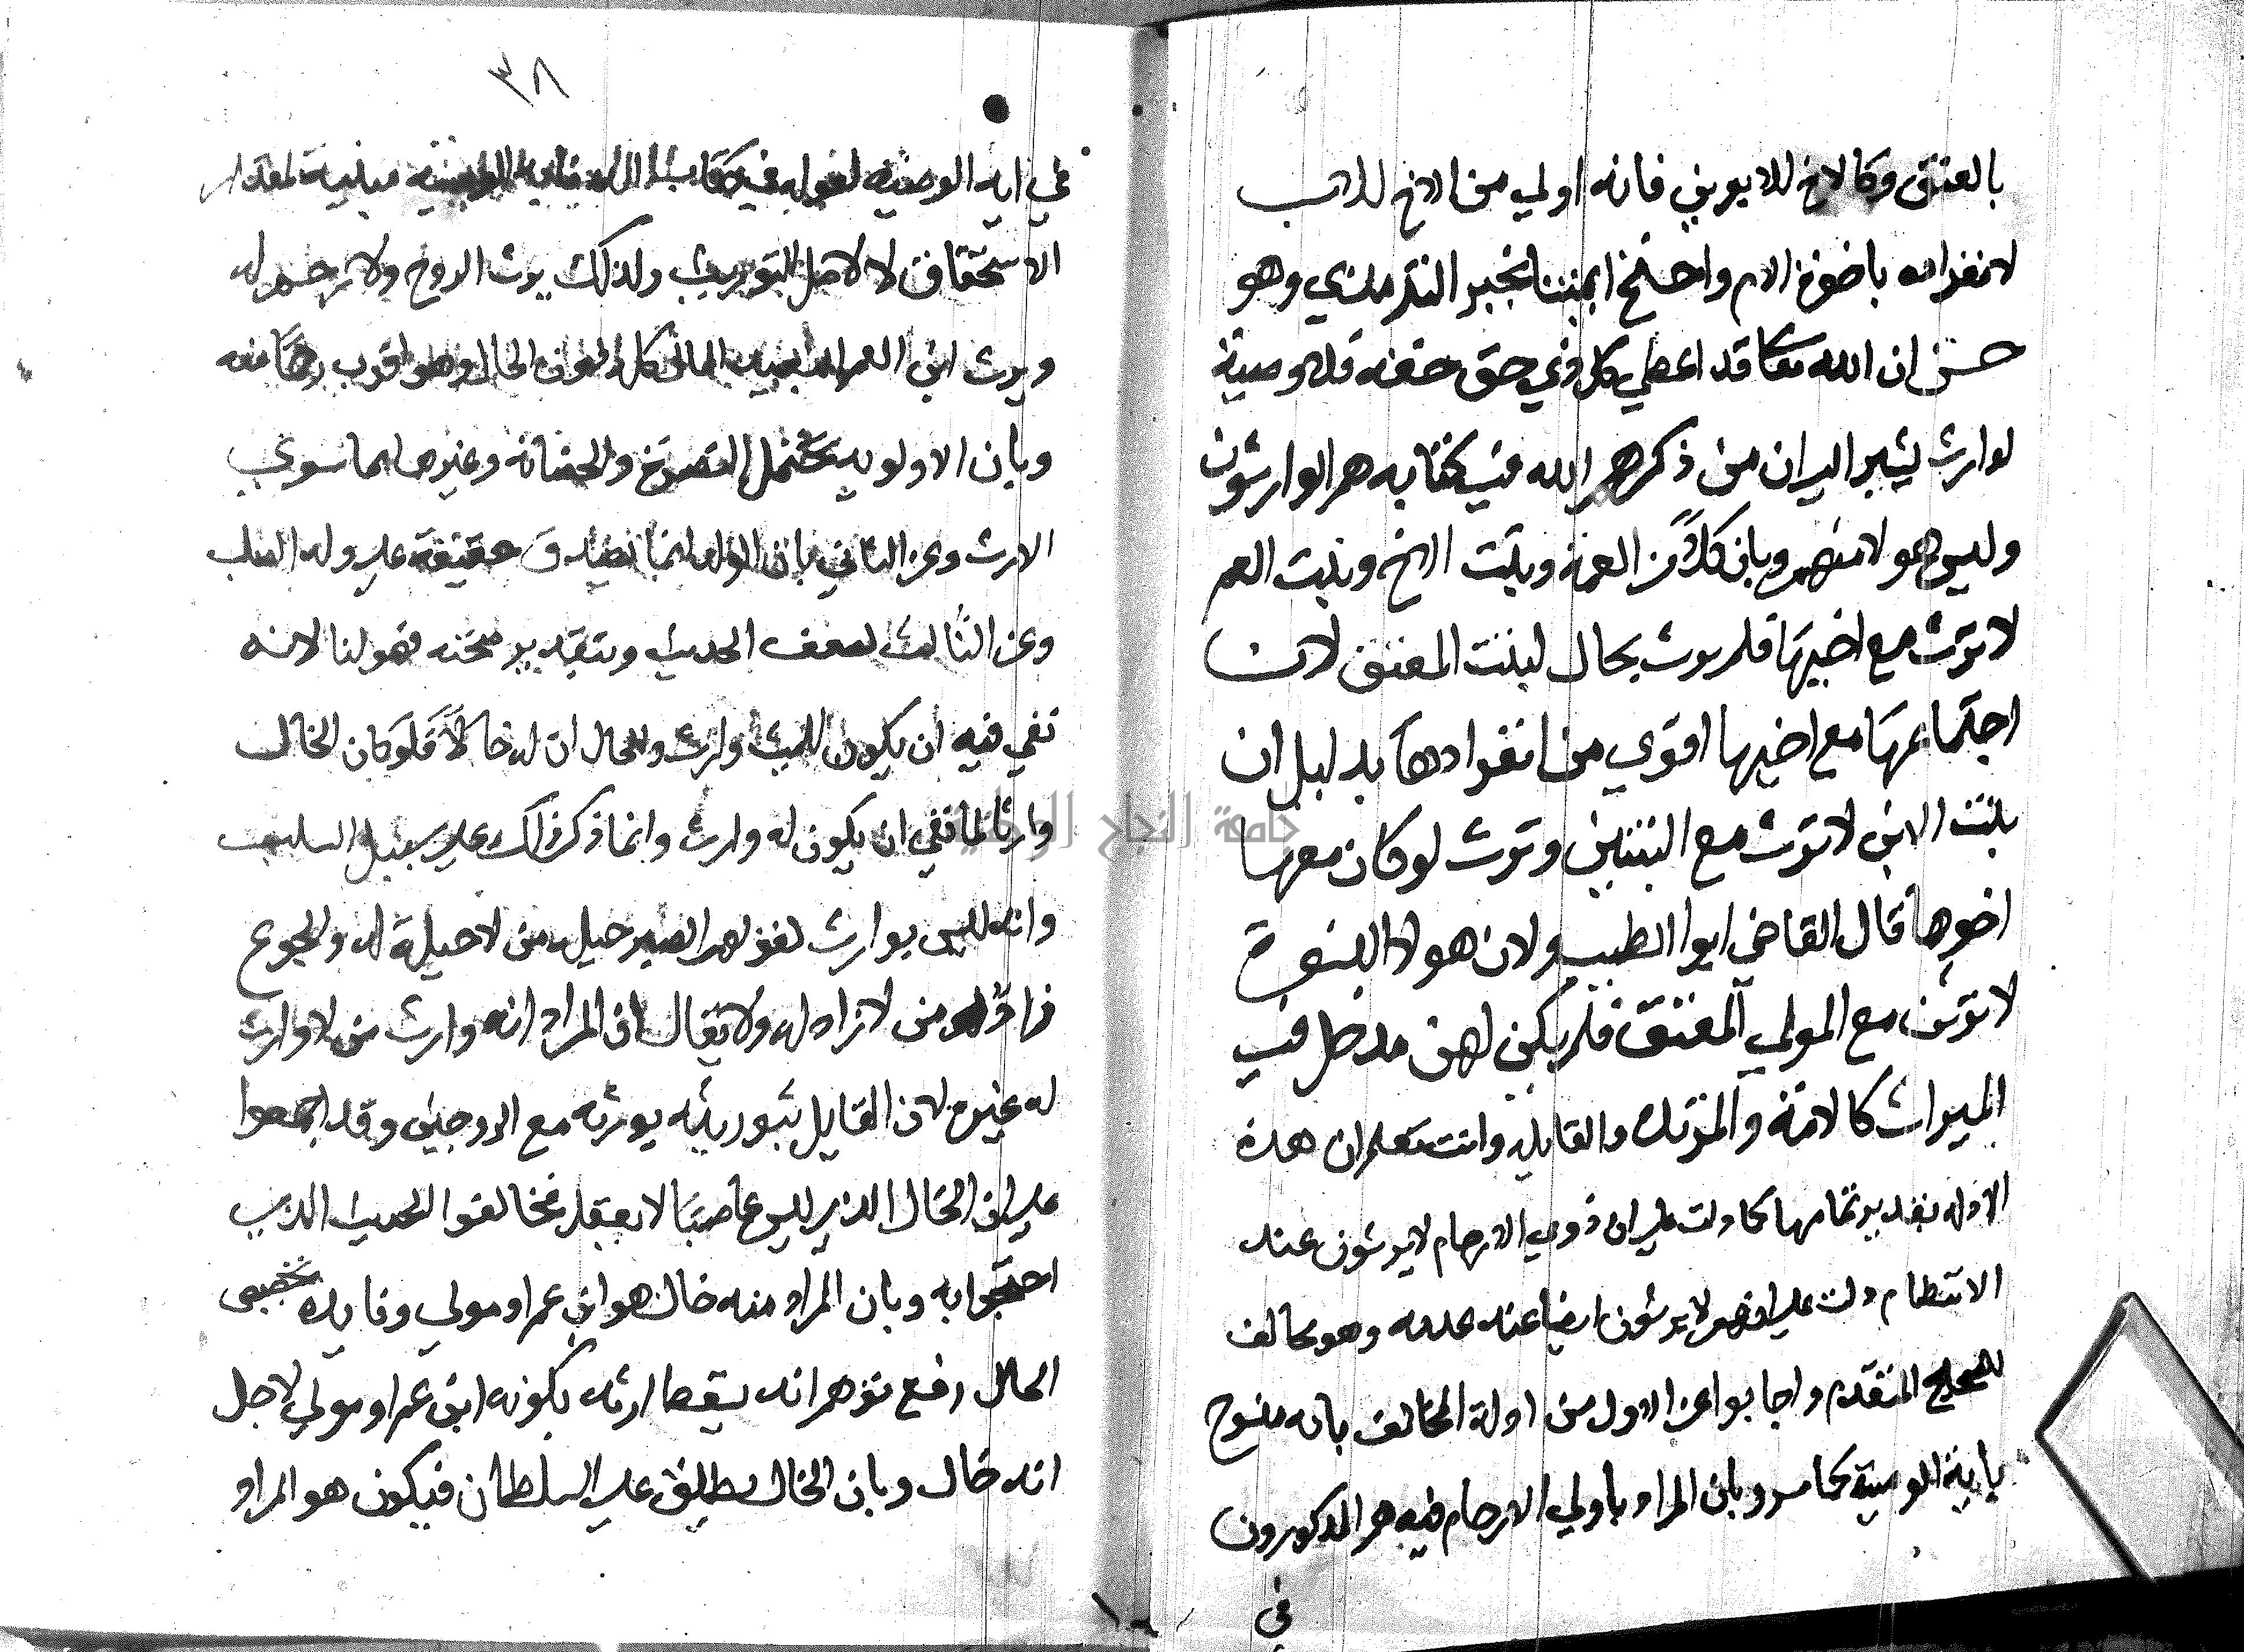 بالعتق وكالاخ للابوين فانه اولي من الاخ للاب
لانفراده باخوة الام واحتج ايمتنا بخبر الترمذي وهو
حسن ان الله تعا قد اعطي كل ذي حق حقه فلا وصية
لوارث يشير الي ان من ذكرهم الله في كتابه هم الوارثون
وليس هولا منهم وبان كلا من العمة وبنت الاخ وبنت العم
لا ترث مع اخيها فلم يرث بحال لبنت المعتق لان
اجتماعها مع اخيها اقوي من انفرادها بدليل ان
بنت الابن لا ترث مع البنتين وترث لو كان معها
اخوها قال القاضي ابوا الطيب ولان هولا النسوة
لا ترثن مع المولي المعتق فلم يكن لهن مدخل في
الميراث كالامة والمرتدة والقابله وانت تعلم ان هذه
الادله بتقدير تمامها كما دلت علي ان ذوي الارحام لا يرثون عند
الانتظام دلت علي انهم لا يرثون ايضا عند عدمه وهو مخالف
للصحيح المتقدم واجابوا عن الاول من ادلة المخالف بانه منسوخ
باية الوصية كما مر وبان المراد باولي الارحام فيه هم المذكورون
في
٣٨
في اية الوصية لقوله في كتاب الله مبنية لمقدار
الاستحقاق لا لاصل التوريث ولذلك يرث الزوج ولا رحم له
ويرث ابن العم البعيد المال كله دون الخال وهو اقرب رحما منه
وبان الاولويه يحتمل التصرف والحضانة وغيرهما مما سوي
الارث وعن الثاني بان الولد انما يصدق حقيقة علي ولد الصلب
وعن الثالث لضعف الحديث وبتقدير صحته فهو لنا لانه
نفي فيه ان يكون للميت وارث والحال ان له خالا فلو كان الخال
وارثا لما نفي ان يكون له وارث وانما ذكر ذلك علي سبيل السلب
وانه ليس بوارث كقولهم الصبر حيلة من لا حيلة له والجوع
زاد من لا زاد له ولا يقال ان المراد انه وارث من لا وارث
له غيره لان القايل بتوريثه يورثه مع الزوجين وقد اجمعوا
علي ان الخال الذي ليس عاصبا لا يعقل فخالفوا الحديث الذي
احتجوا به وبان المراد منه خال هو ابن عم او مولي وفايده تخصيص
الخال رفع توهم انه يسقط ارثه بكونه ابن عم او مولي لاجل
انه خال وبان الخال يطلق علي السلطان فيكون هو المراد
جامعة النجاح الوطنية